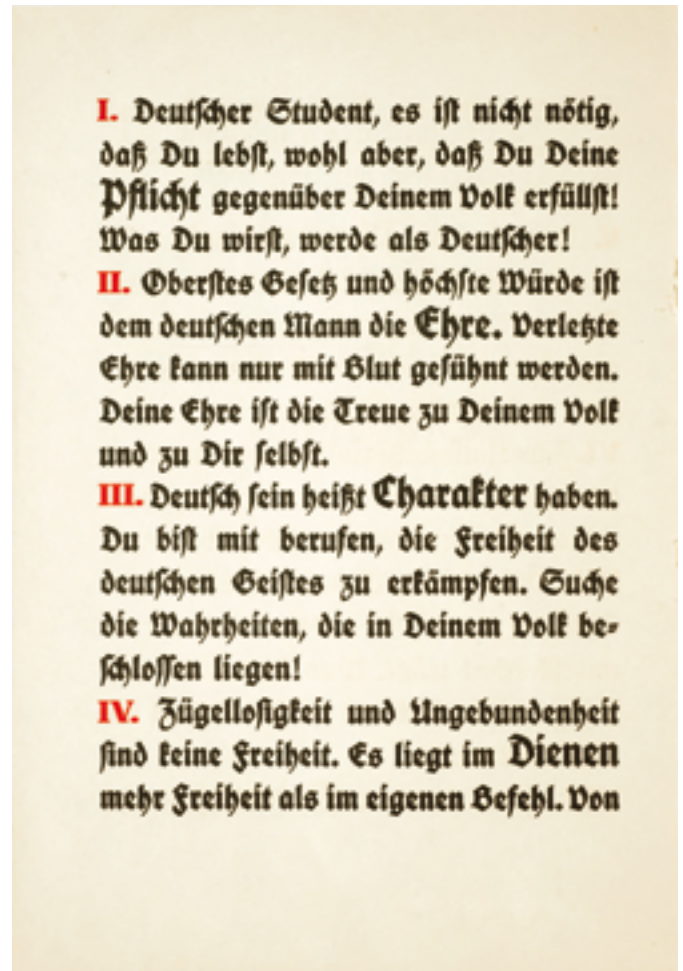 I. Deutscher Student, es ist nicht nötig,
daß Du lebst, wohl aber, daß Du Deine
Pflicht gegenüber Deinem Volk erfüllst!
Was Du wirst, werde als Deutscher!
II. Oberstes Gesetz und höchste Würde ist
dem deutschen Mann die Ehre. Verletzte
Ehre kann nur mit Blut gesühnt werden.
Deine Ehre ist die Treue zu Deinem Volk
und zu Dir selbst.
III. Deutsch sein heißt Charakter haben.
Du bist mit berufen, die Freiheit des
deutschen Geistes zu erkämpfen. Suche
die Wahrheiten, die in Deinem Volk be-
schlossen liegen!
IV. Zügellosigkeit und Ungebundenheit
sind keine Freiheit. Es liegt im Dienen
mehr Freiheit als im eigenen Befehl. Von